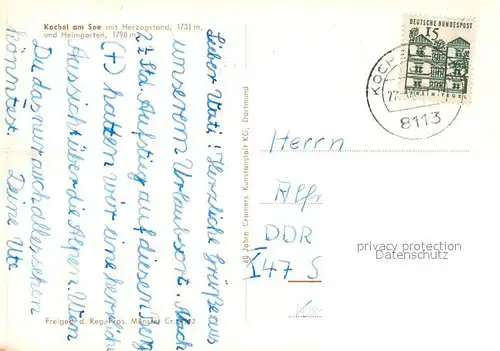 Kochel am See mit Herzogstand, 1731 m,
und Heimgarten, 1790 m
Lieber Vati! Herzliche Grüße aus
unserem Urlaubsort. Nach
2½ Std. Aufstieg auf diesen Berg
(+) hatten wir eine herrliche
Aussicht über die Alpen. Wenn
Du das nur auch alles sehen
könntest. Deine Ute
Freigeg. d. Reg. Präs. Münster
60 Jahre Cramers Kunstanstalt KG, Dortmund
DEUTSCHE BUNDESPOST
15
TEGEL
KOCHE
8113
Herrn
Alfr
DDR
X47 S
privacy protection
Oldthing.de